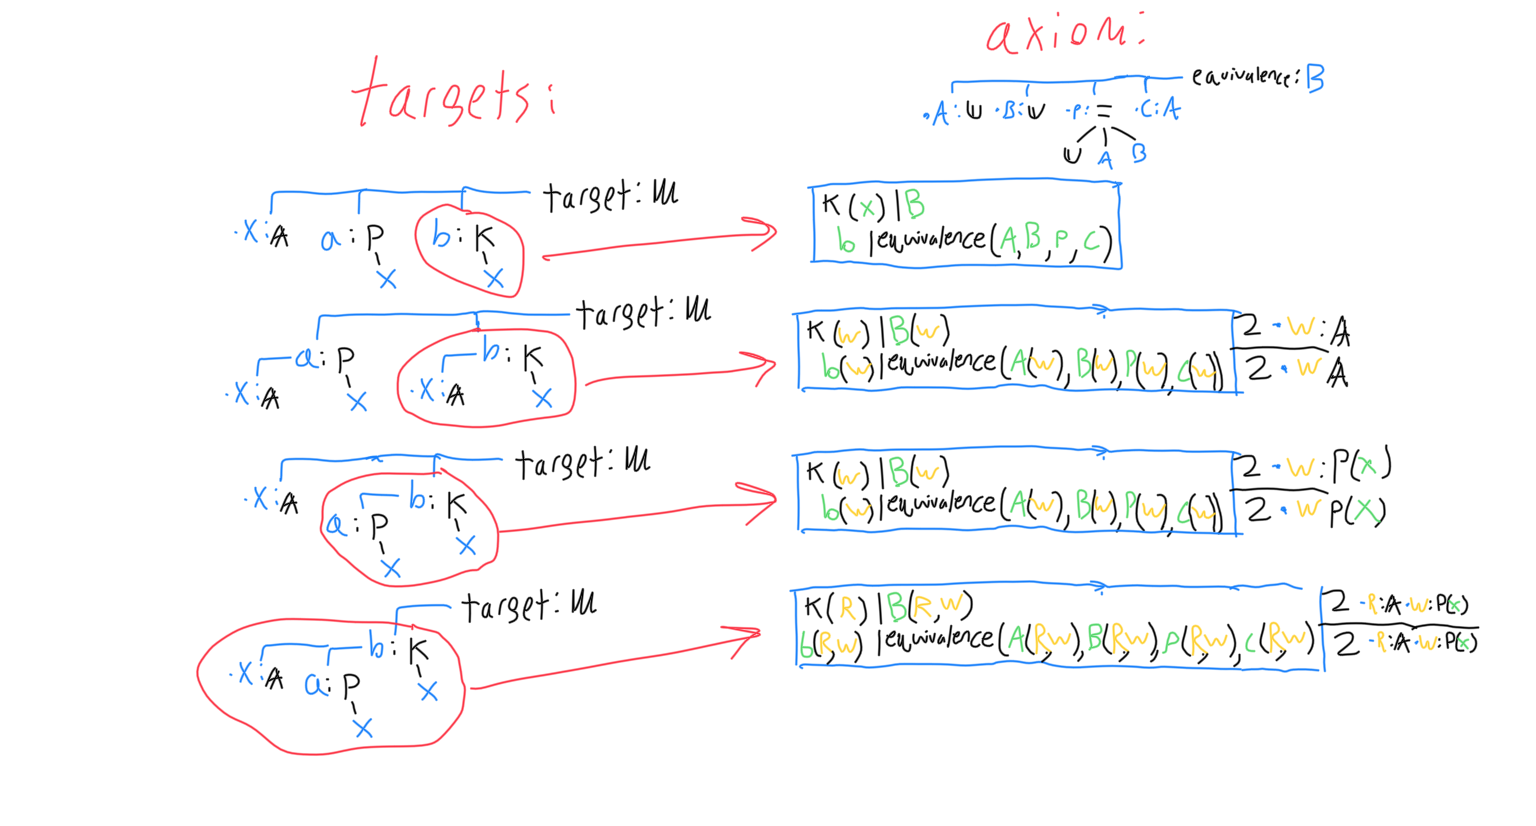 axiom:
targets:
equivalence: B
·A:U ·B:U ·P:= ·C:A
U A B
target: U
·X:A a:P b:K
X X
K(x)|B
b|equivalence(A,B,P,C)
target: U
a:P b:K
·X:A X ·X:A X
K(w)|B(w)
b(w)|equivalence(A(w),B(w),P(w),C(w))
2 ·w:A
2 ·w A
target: U
·X:A b:K
a:P X
X
K(w)|B(w)
b(w)|equivalence(A(w),B(w),P(w),C(w))
2 ·w:P(x)
2 ·w P(x)
target: U
b:K
·X:A a:P X
X
K(R)|B(R,w)
b(R,w)|equivalence(A(R,w),B(R,w),P(R,w),C(R,w))
2 ·R:A ·w:P(x)
2 ·R:A ·w:P(x)